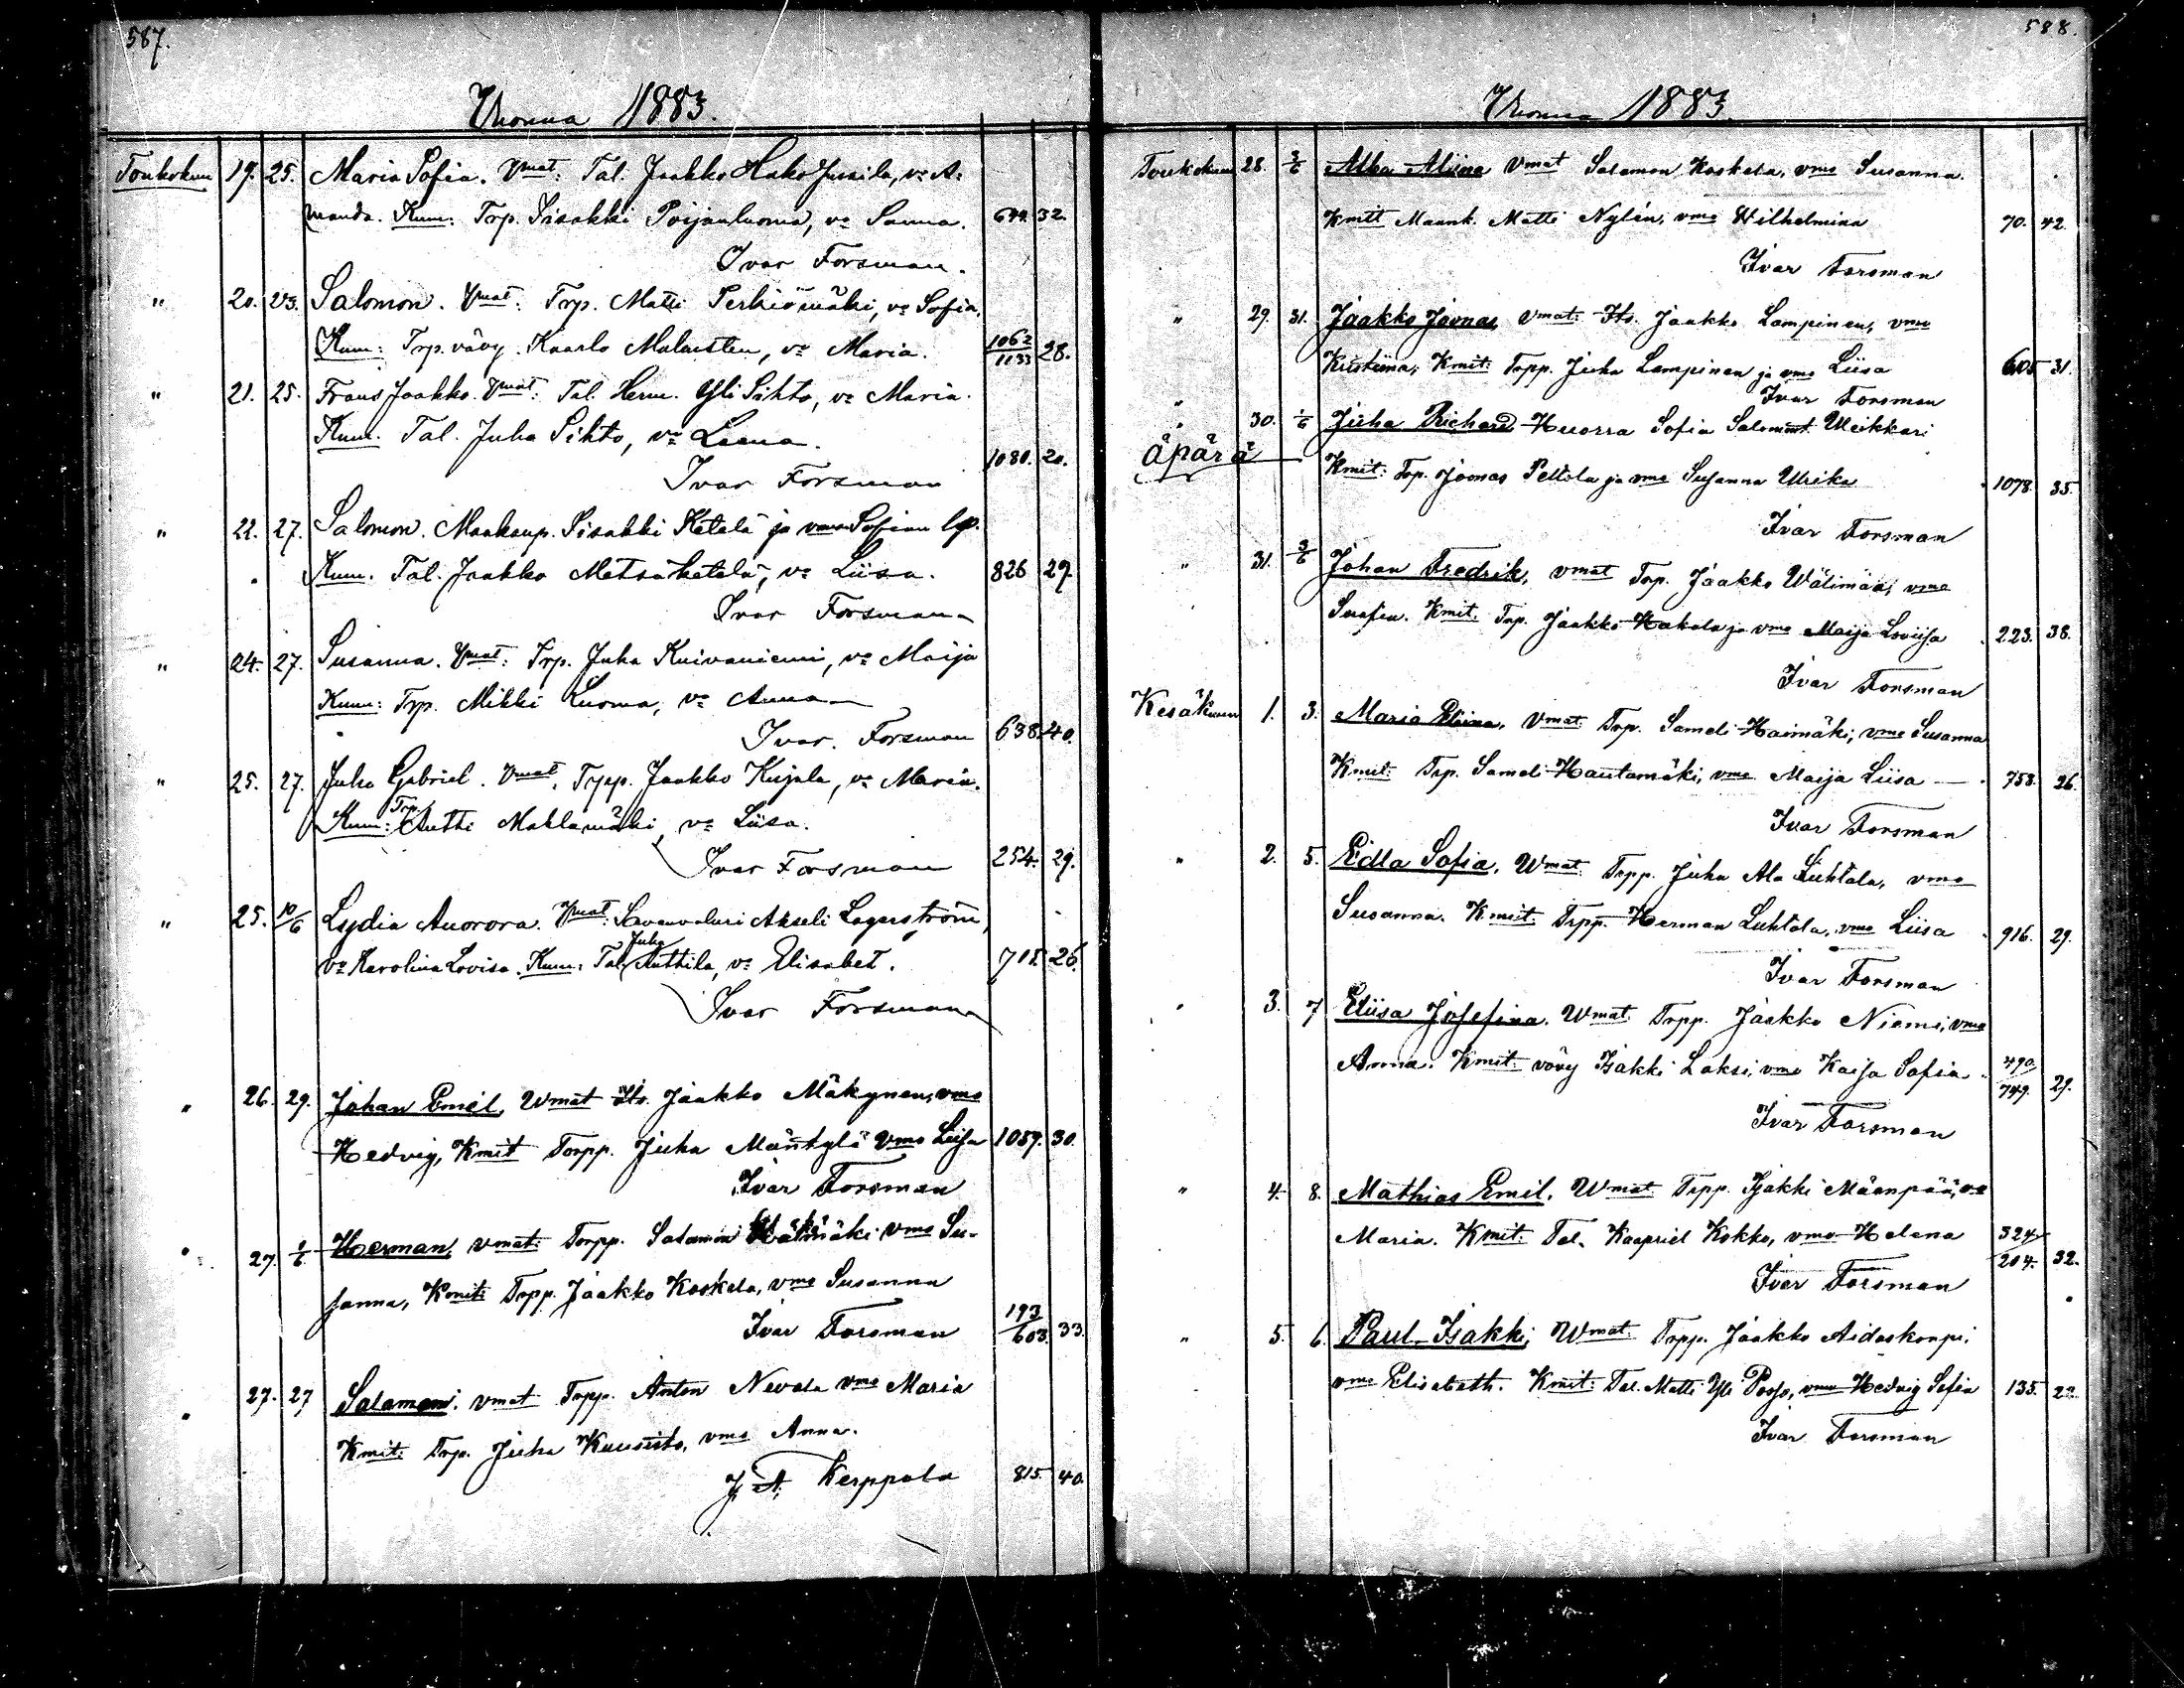 587.
Vuonna 1883.
Toukokuu 19. 25. Maria Sofia. Vmat: Tal. Jaakko Hako Jussila, vo A-
manda. Kum: Trp. Iisakki Poijanluoma, vo Sanna. 32.
Ivar Forsman.
" 20. 23. Salomon. Vmat: Trp. Matti Perkiömäki, vo Sofia.
Kum: Trp. vävy. Kaarlo Malmsten, vo Maria. 1062/1133 28.
" 21. 25. Frans Jaakko. Vmat: Tal. Herm. Yli Sihto, vo Maria.
Kum. Tal. Juha Sihto, vo Leena.
1080. 20.
Ivar Forsman
" 22. 27. Salomon. Maakaup. Iisakki Ketelä ja vmo Sofian lps.
Kum. Tal. Jaakko Metsäketelä, vo Liisa. 826 29.
Ivar Forsman
" 24. 27. Susanna. Vmat: Trp. Juha Kuivaniemi, vo Maija
Kum: Trp. Mikki Luoma, vo Anna
Ivar. Forsman 638. 40.
" 25. 27. Juho Gabriel. Vmat. Trpp. Jaakko Kujala, vo Maria.
Kum: Trp. Antti Mahlamäki, vo Liisa.
Ivar Forsman 254. 29.
" 25. 10/6 Lydia Auorora. Vmat: Akseli Lagerström,
vo Karolina Lovisa. Kum: Tal. Juha Anttila, vo Elisabet. 715. 26.
Ivar Forsman
" 26. 29. Johan Emil, Wmat Its. Jaakko Mäkynen, vmo
Hedvig, Kmit Torpp. Juha Mäntylä vmo Liisa 1059. 30.
Ivar Forsman
" 27. 1/6 Herman, vmat: Torpp. Salamon vmo Su-
sanna, Kmit: Torpp. Jaakko Koskela, vmo Susanna
Ivar Forsman 193/603. 33.
" 27. 27 Salamon. vmat Torpp. Anton Nevala vmo Maria
Kmit: Trp. Juha Kuusisto, vmo Anna.
J. A. Kerppola 815. 40.
588.
Vuonna 1883.
Toukokuu 28. 3/6 Alma Aliina Vmat Salamon Koskela, vmo Susanna.
Kmit Maank. Matti Nylén, vmo Wilhelmina 70. 42.
Ivar Forsman
" 29. 31. Jaakko Joonas, Vmat: Its. Jaakko Lampinen, vmo
Kristiina, Kmit: Torpp. Juha Lampinen ja vmo Liisa 605 31.
Ivar Forsman
" 30. 1/6 Juha Richard Huorra Sofia Salomont. Weikkari
äpärä Kmit: Trp. Joonas Peltola ja vmo Susanna Ulrika 1078. 35.
Ivar Forsman
" 31. 3/6 Johan Fredrik, vmat Trp. Jaakko Wälimäki, vmo
Serafia. Kmit: Trp. Jaakko Hakola ja vmo Maija Loviisa 223. 38.
Ivar Forsman
Kesäkuun 1. 3. Maria Eliina, Vmat: Trp. Sameli Harimäki, vmo Susanna
Kmit: Trp. Sameli Hautamäki, vmo Maija Liisa 758. 26.
Ivar Forsman
" 2. 5. Edla Sofia, Wmat: Torpp. Juha Ala Luhtala, vmo
Susanna. Kmit: Trpp. Herman Luhtala, vmo Liisa 916. 29.
Ivar Forsman
" 3. 7 Eliisa Josefina. Wmat: Torpp. Jaakko Niemi, vmo
Anna. Kmit: vävy Isakki Laksi, vmo Kaisa Sofia 490/749. 29.
Ivar Forsman
" 4. 8. Mathias Emil. Wmat Trpp. Isakki Mäenpää, vo
Maria. Kmit: Tal. Kaapriel Kokko, vmo Helena 324/204. 32.
Ivar Forsman
" 5. 6. Paul Isakki, Wmat: Torpp. Jaakko Aidaskorpi,
vmo Elisabeth. Kmit: Tal. Matti Yli Posso, vmo Hedvig Sofia 135. 22
Ivar Forsman